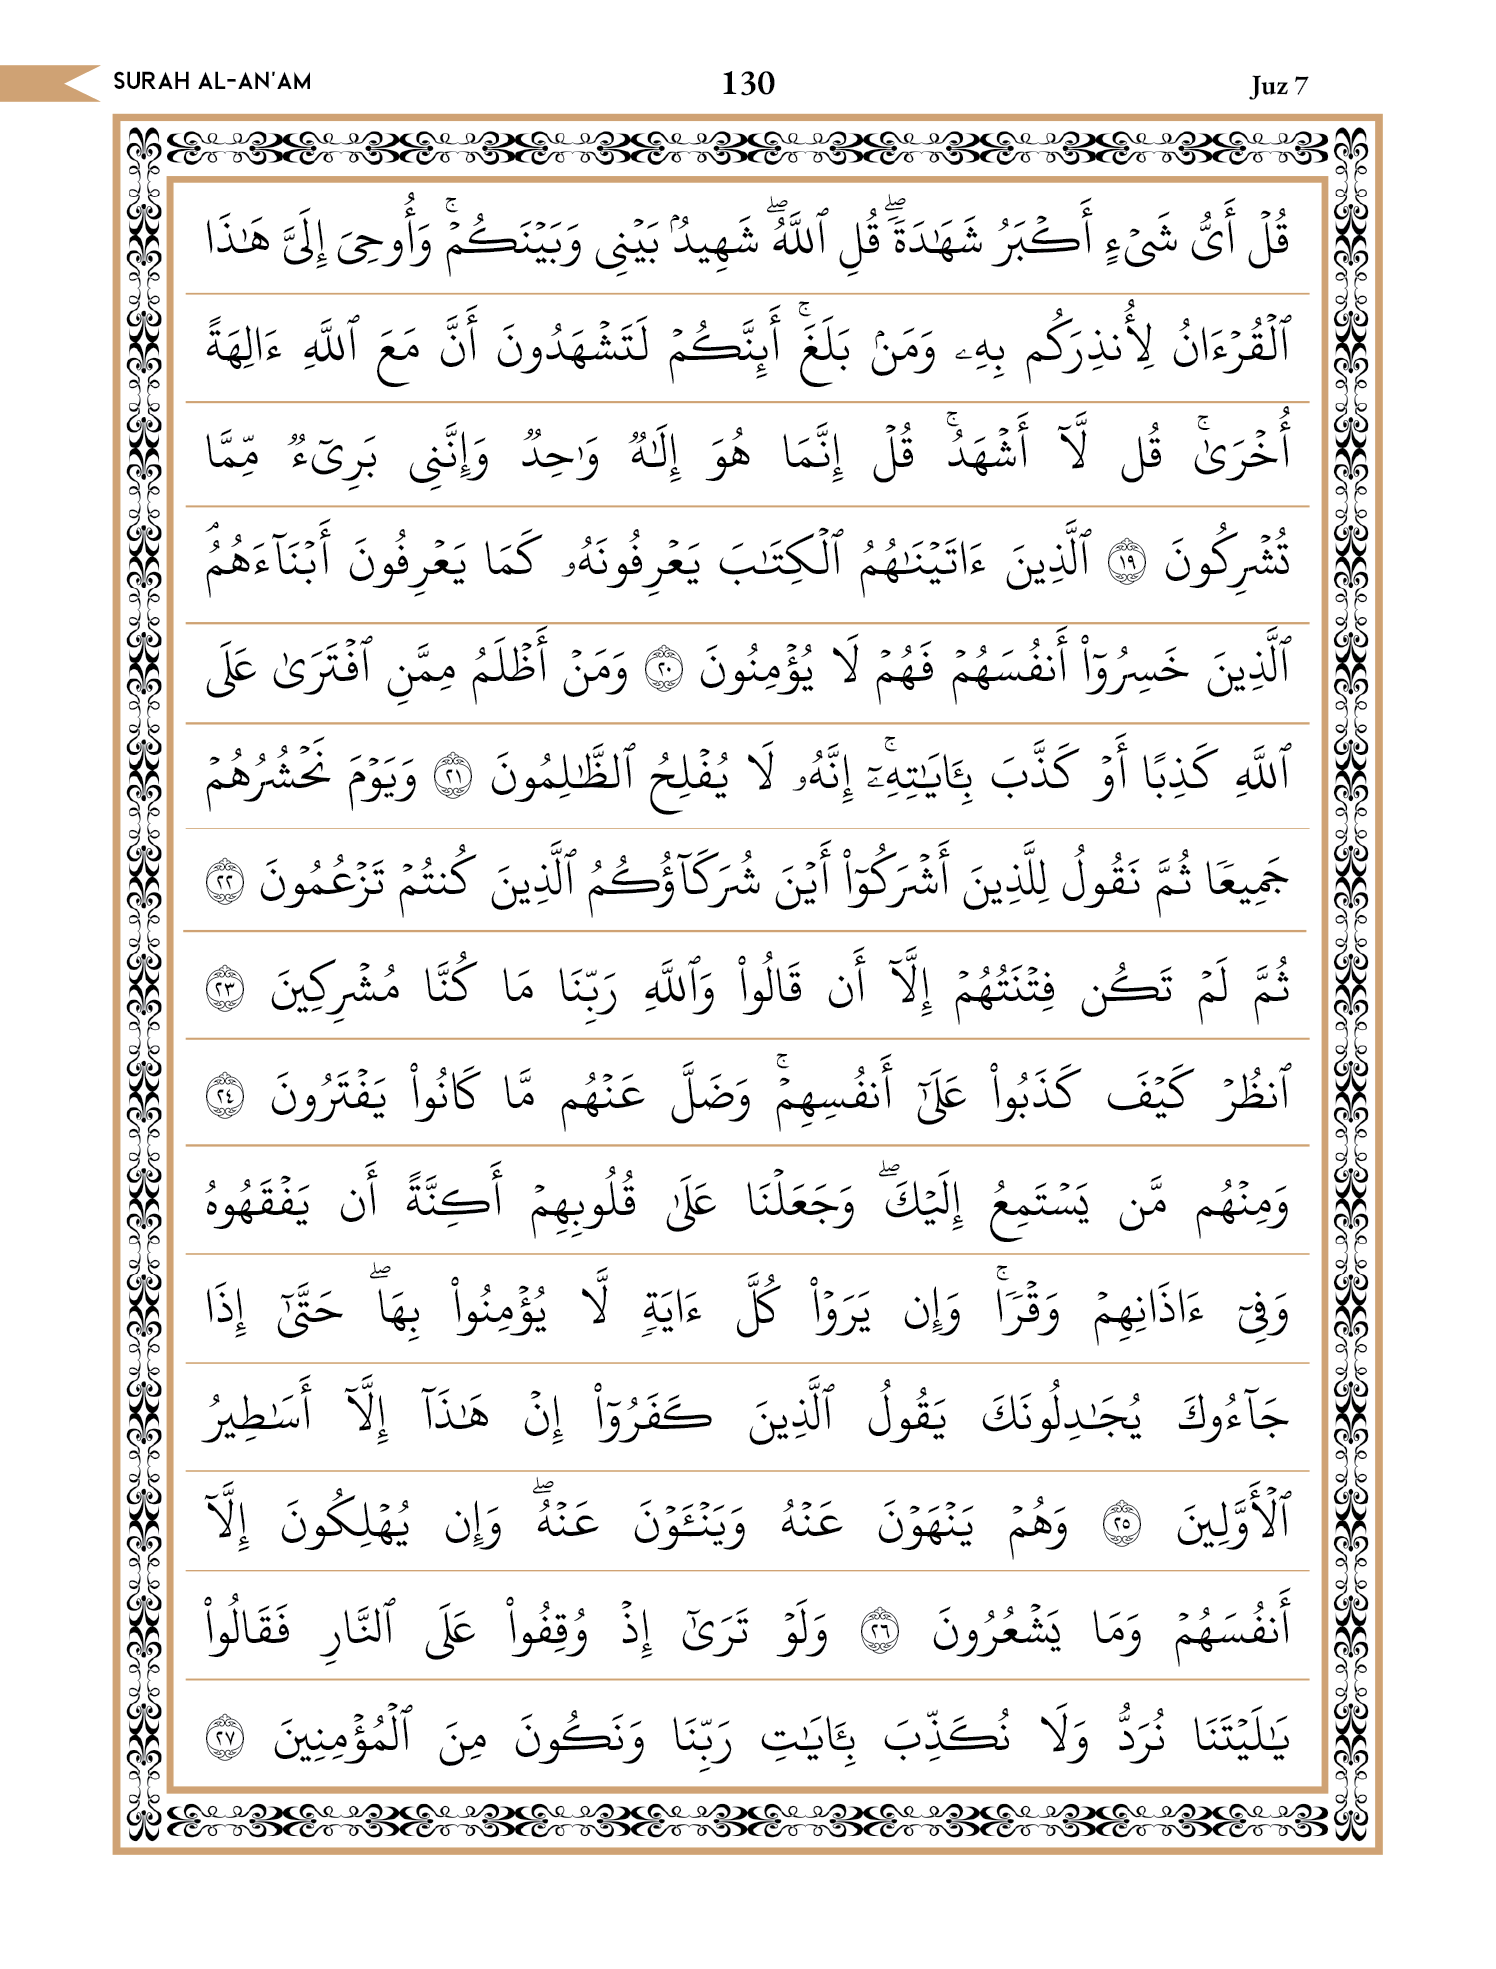 SURAH AL-AN'AM
130
Juz 7
قُلۡ أَيُّ شَيۡءٍ أَكۡبَرُ شَهَٰدَةٗۖ قُلِ ٱللَّهُۖ شَهِيدُۢ بَيۡنِي وَبَيۡنَكُمۡۚ وَأُوحِيَ إِلَيَّ هَٰذَا
ٱلۡقُرۡءَانُ لِأُنذِرَكُم بِهِۦ وَمَنۢ بَلَغَۚ أَئِنَّكُمۡ لَتَشۡهَدُونَ أَنَّ مَعَ ٱللَّهِ ءَالِهَةً
أُخۡرَىٰۚ قُل لَّآ أَشۡهَدُۚ قُلۡ إِنَّمَا هُوَ إِلَٰهٞ وَٰحِدٞ وَإِنَّنِي بَرِيٓءٞ مِّمَّا
تُشۡرِكُونَ ١٩ ٱلَّذِينَ ءَاتَيۡنَٰهُمُ ٱلۡكِتَٰبَ يَعۡرِفُونَهُۥ كَمَا يَعۡرِفُونَ أَبۡنَآءَهُمُۘ
ٱلَّذِينَ خَسِرُوٓاْ أَنفُسَهُمۡ فَهُمۡ لَا يُؤۡمِنُونَ ٢٠ وَمَنۡ أَظۡلَمُ مِمَّنِ ٱفۡتَرَىٰ عَلَى
ٱللَّهِ كَذِبًا أَوۡ كَذَّبَ بِـَٔايَٰتِهِۦٓۚ إِنَّهُۥ لَا يُفۡلِحُ ٱلظَّٰلِمُونَ ٢١ وَيَوۡمَ نَحۡشُرُهُمۡ
جَمِيعٗا ثُمَّ نَقُولُ لِلَّذِينَ أَشۡرَكُوٓاْ أَيۡنَ شُرَكَآؤُكُمُ ٱلَّذِينَ كُنتُمۡ تَزۡعُمُونَ ٢٢
ثُمَّ لَمۡ تَكُن فِتۡنَتُهُمۡ إِلَّآ أَن قَالُواْ وَٱللَّهِ رَبِّنَا مَا كُنَّا مُشۡرِكِينَ ٢٣
ٱنظُرۡ كَيۡفَ كَذَبُواْ عَلَىٰٓ أَنفُسِهِمۡۚ وَضَلَّ عَنۡهُم مَّا كَانُواْ يَفۡتَرُونَ ٢٤
وَمِنۡهُم مَّن يَسۡتَمِعُ إِلَيۡكَۖ وَجَعَلۡنَا عَلَىٰ قُلُوبِهِمۡ أَكِنَّةً أَن يَفۡقَهُوهُ
وَفِيٓ ءَاذَانِهِمۡ وَقۡرٗاۚ وَإِن يَرَوۡاْ كُلَّ ءَايَةٖ لَّا يُؤۡمِنُواْ بِهَاۖ حَتَّىٰٓ إِذَا
جَآءُوكَ يُجَٰدِلُونَكَ يَقُولُ ٱلَّذِينَ كَفَرُوٓاْ إِنۡ هَٰذَآ إِلَّآ أَسَٰطِيرُ
ٱلۡأَوَّلِينَ ٢٥ وَهُمۡ يَنۡهَوۡنَ عَنۡهُ وَيَنۡـَٔوۡنَ عَنۡهُۖ وَإِن يُهۡلِكُونَ إِلَّآ
أَنفُسَهُمۡ وَمَا يَشۡعُرُونَ ٢٦ وَلَوۡ تَرَىٰٓ إِذۡ وُقِفُواْ عَلَى ٱلنَّارِ فَقَالُواْ
يَٰلَيۡتَنَا نُرَدُّ وَلَا نُكَذِّبَ بِـَٔايَٰتِ رَبِّنَا وَنَكُونَ مِنَ ٱلۡمُؤۡمِنِينَ ٢٧